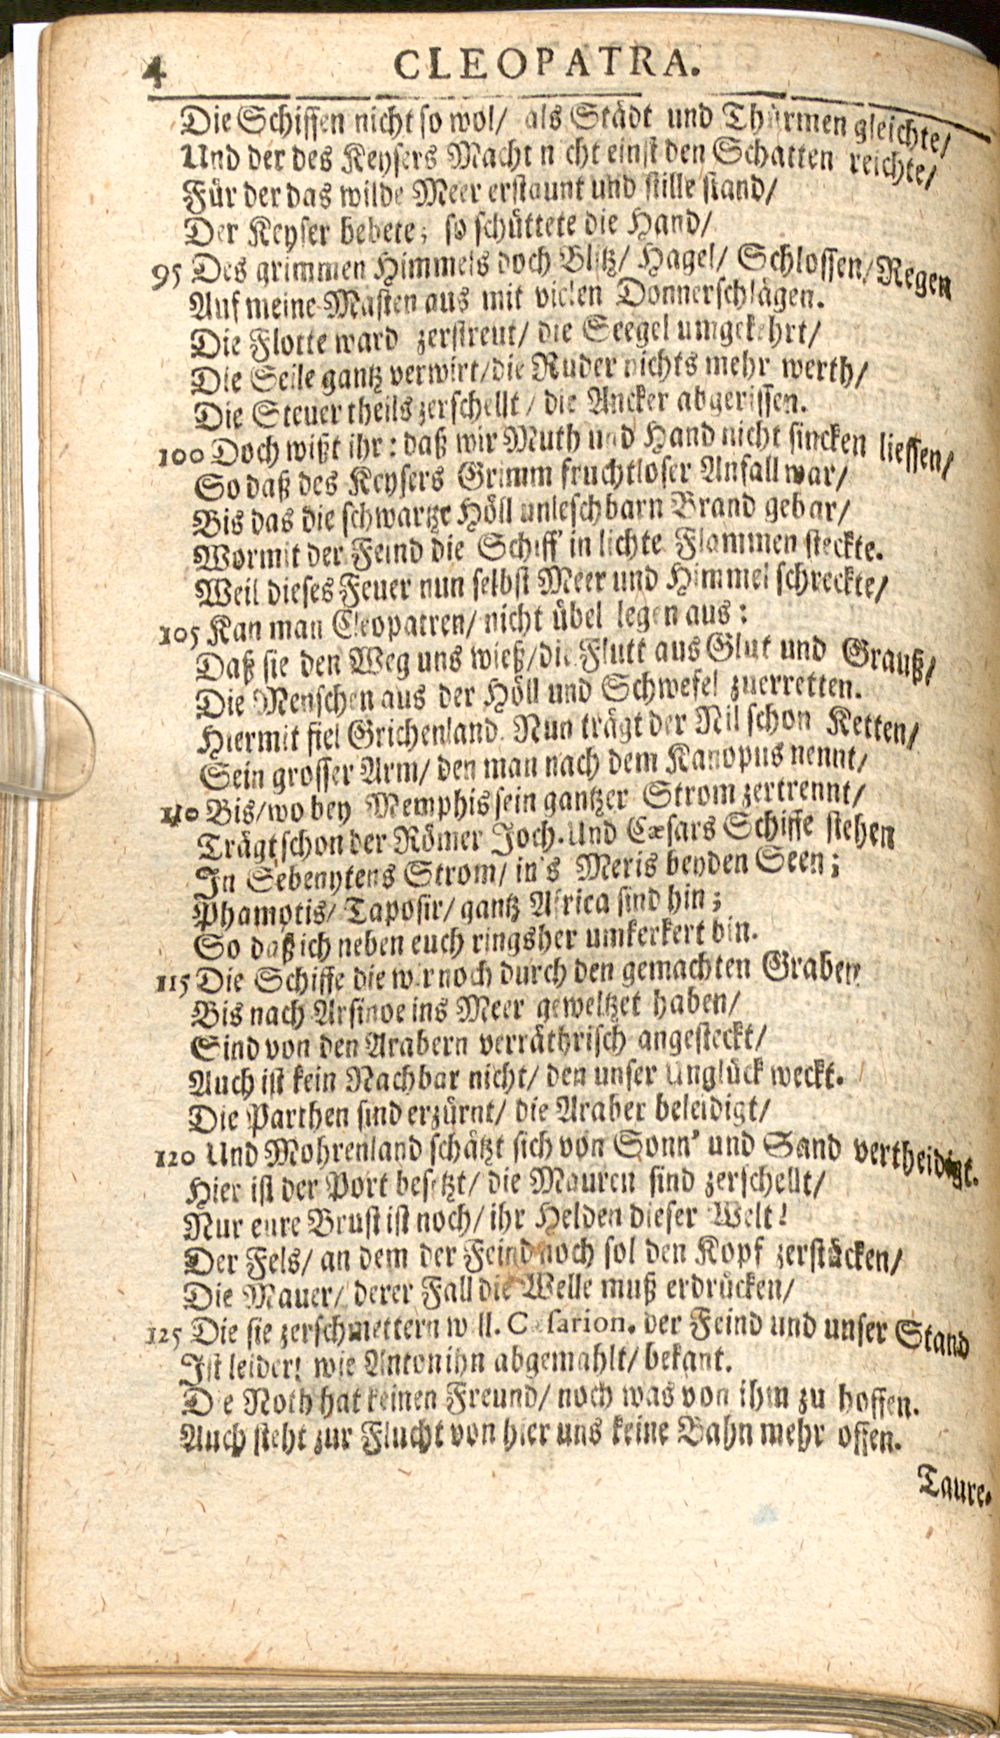 4 CLEOPATRA.
Die Schiffen nicht so wol/ als Städt und Thürmen gleichte/
Und der des Keysers Macht nicht einst den Schatten reichte/
Für der das wilde Meer erstaunt und stille stand/
Der Keyser bebete; so schüttete die Hand/
95 Des grimmen Himmels doch Blitz/ Hagel/ Schlossen/ Regen
Auf meine Masten aus mit vielen Donnerschlägen.
Die Flotte ward zerstreut/ die Seegel umgekehrt/
Die Seile gantz verwirt/ die Ruder nichts mehr werth/
Die Steuer theils zerschellt/ die Ancker abgerissen.
100 Doch wißt ihr: daß wir Muth und Hand nicht sincken liessen/
So daß des Keysers Grimm fruchtloser Anfall war/
Bis das die schwartze Höll unleschbarn Brand gebar/
Wormit der Feind die Schiff in lichte Flammen steckte.
Weil dieses Feuer nun selbst Meer und Himmel schreckte/
105 Kan man Cleopatren/ nicht übel legen aus:
Daß sie den Weg uns wieß/ die Flutt aus Glut und Grauß/
Die Menschen aus der Höll und Schwefel zuerretten.
Hiermit fiel Grichenland. Nun trägt der Nil schon Ketten/
Sein grosser Arm/ den man nach dem Kanopus nennt/
110 Bis/ wo bey Memphis sein gantzer Strom zertrennt/
Trägt schon der Römer Joch. Und Cæsars Schiffe stehen
In Sebenytens Strom/ in's Meris beyden Seen;
Phamotis/ Taposir/ gantz Africa sind hin;
So daß ich neben euch ringsher umkerkert bin.
115 Die Schiffe die wir noch durch den gemachten Graben
Bis nach Arsinoe ins Meer geweltzet haben/
Sind von den Arabern verräthrisch angesteckt/
Auch ist kein Nachbar nicht/ den unser Unglück weckt.
Die Parthen sind erzürnt/ die Araber beleidigt/
120 Und Mohrenland schätzt sich von Sonn' und Sand vertheidigt.
Hier ist der Port besetzt/ die Mauren sind zerschellt/
Nur eure Brust ist noch/ ihr Helden dieser Welt!
Der Fels/ an dem der Feind noch sol den Kopf zerstücken/
Die Mauer/ derer Fall die Welle muß erdrücken/
125 Die sie zerschmettern will. Cæsarion. der Feind und unser Stand
Ist leider! wie Antonihn abgemahlt/ bekant.
Die Noth hat keinen Freund/ noch was von ihm zu hoffen.
Auch steht zur Flucht von hier uns keine Bahn mehr offen.
Taure-